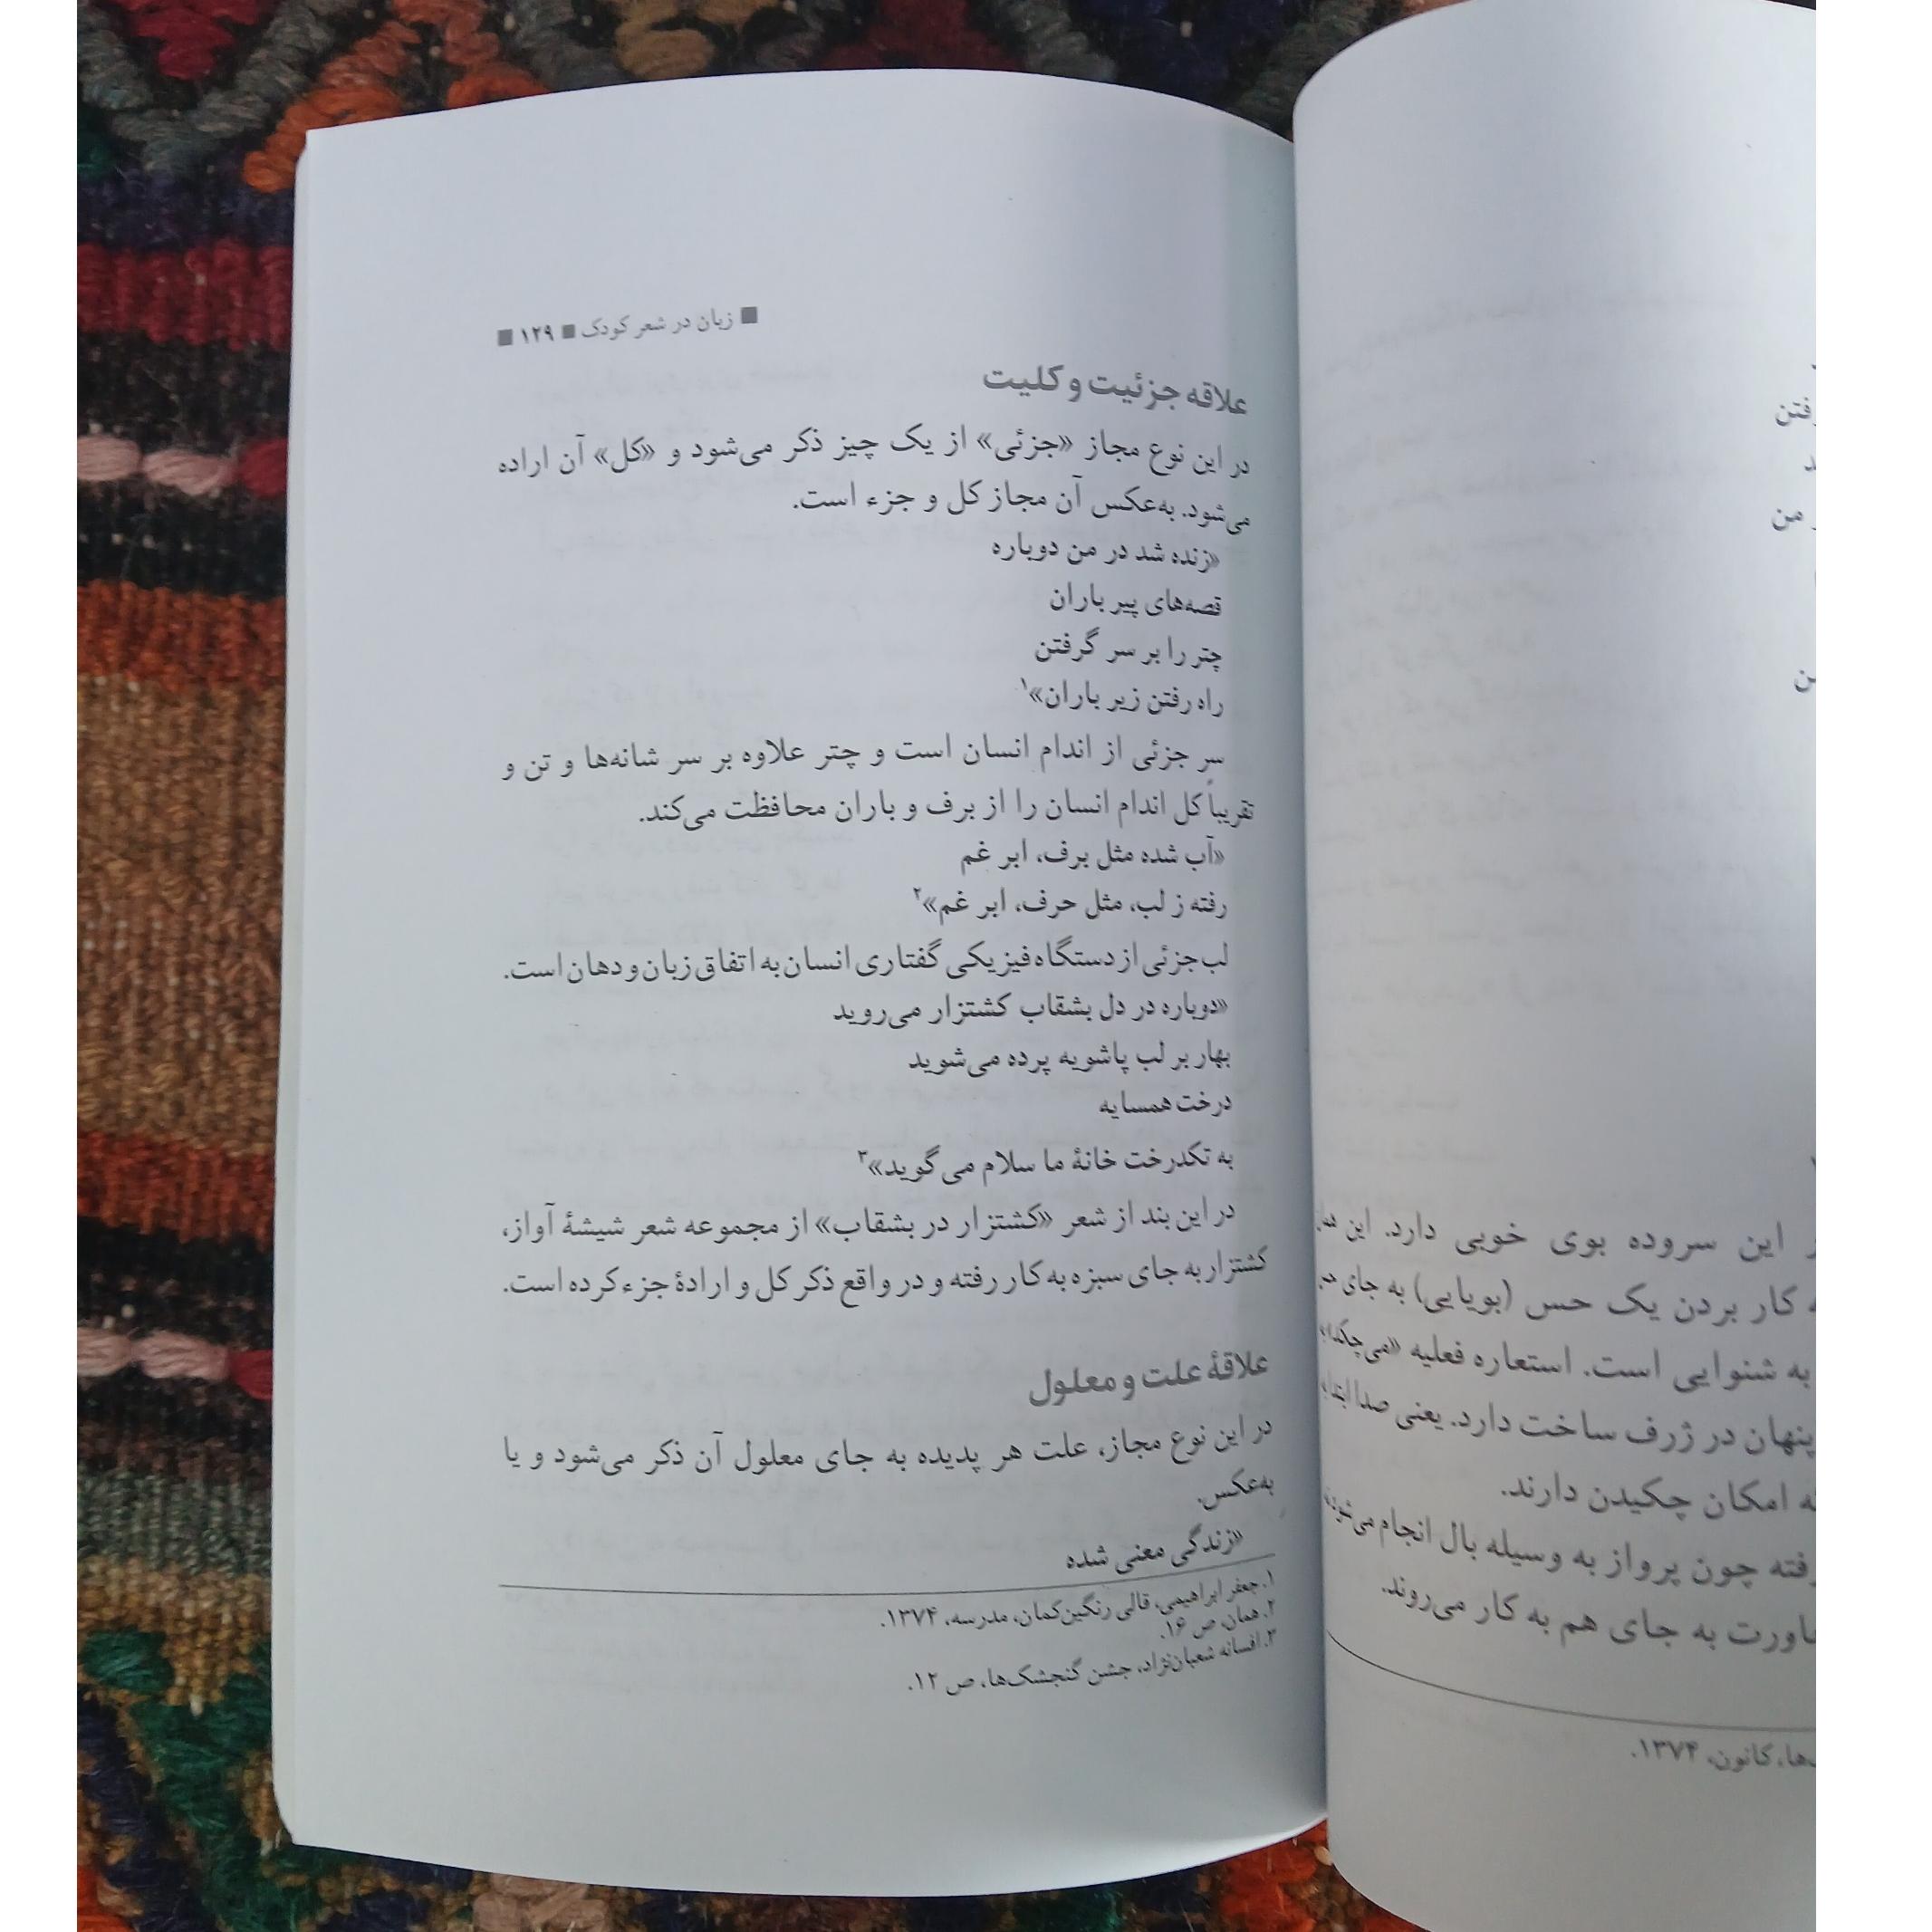 فتن
من
این سروده بوی خوبی دارد. این
کار بردن یک حس (بویایی) به جای
به شنوایی است. استعاره فعلیه «می‌چکد»
پنهان در ژرف ساخت دارد. یعنی صدا ابتدا
امکان چکیدن دارند.
چون پرواز به وسیله بال انجام می‌شود،
به جای هم به کار می‌روند.
کانون، ۱۳۷۴.
■ زبان در شعر کودک ■ ۱۲۹ ■
علاقه جزئیت و کلیت
در این نوع مجاز «جزئی» از یک چیز ذکر می‌شود و «کل» آن اراده
می‌شود. به‌عکس آن مجاز کل و جزء است.
«زنده شد در من دوباره
قصه‌های پیر باران
چتر را بر سر گرفتن
راه رفتن زیر باران»۱
سر جزئی از اندام انسان است و چتر علاوه بر سر شانه‌ها و تن و
تقریباً کل اندام انسان را از برف و باران محافظت می‌کند.
«آب شده مثل برف، ابر غم
رفته ز لب، مثل حرف، ابر غم»۲
لب جزئی از دستگاه فیزیکی گفتاری انسان به اتفاق زبان و دهان است.
«دوباره در دل بشقاب کشتزار می‌روید
بهار بر لب پاشویه پرده می‌شوید
درخت همسایه
به تکدرخت خانهٔ ما سلام می‌گوید»۳
در این بند از شعر «کشتزار در بشقاب» از مجموعه شعر شیشهٔ آواز،
کشتزار به جای سبزه به کار رفته و در واقع ذکر کل و ارادهٔ جزء کرده است.
علاقهٔ علت و معلول
در این نوع مجاز، علت هر پدیده به جای معلول آن ذکر می‌شود و یا
به‌عکس.
«زندگی معنی شده
۱. جعفر ابراهیمی، قالی رنگین‌کمان، مدرسه، ۱۳۷۴.
۲. همان، ص ۱۶.
۳. افسانه شعبان‌نژاد، جشن گنجشک‌ها، ص ۱۲.